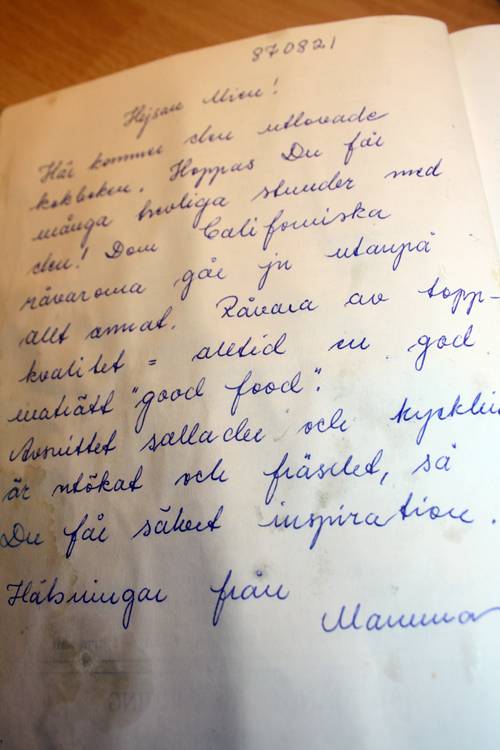 870821
Hejsan Mien!
Här kommer den utlovade
kokboken. Hoppas Du får
många trevliga stunder med
den! Dom Californiska
råvarorna går ju utanpå
allt annat. Råvara av topp-
kvalitet = alltid en god
maträtt "good food".
Avsnittet sallader och kyckling
är utökat och fräschet, så
Du får säkert inspiration.
Hälsningar från
Mamma